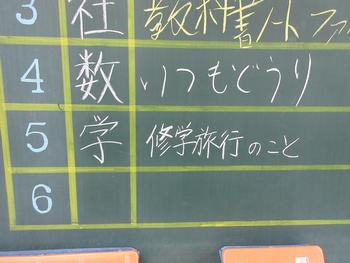 3 社 教科書ノートファ
4 数 いつもどうり
5 学 修学旅行のこと
6